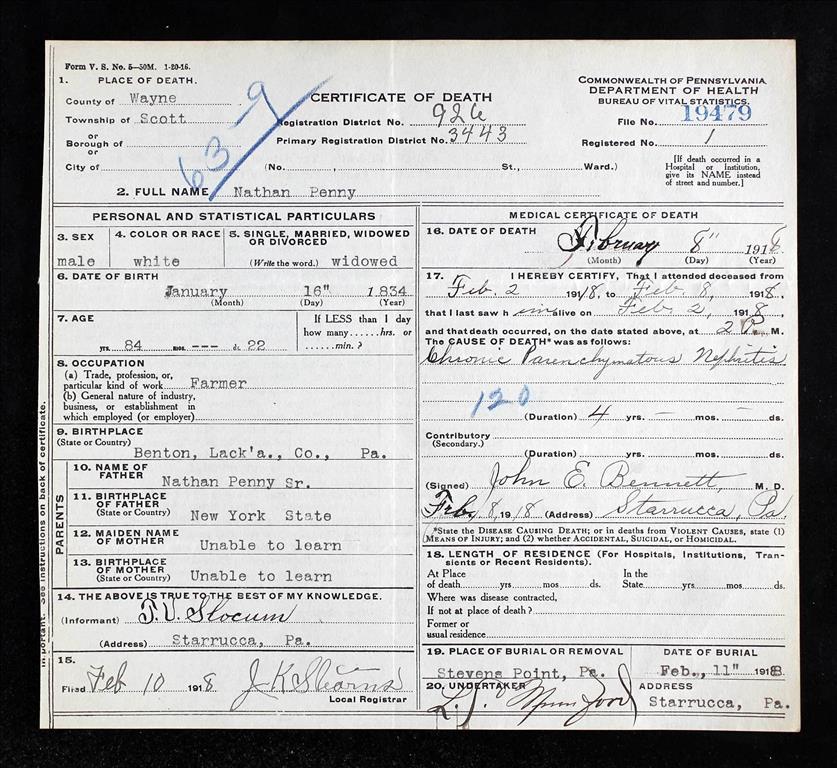 Form V. S. No. 5—50M. 1-20-16.
1. PLACE OF DEATH.
County of Wayne
Township of Scott
or
Borough of
or
City of
63-9
CERTIFICATE OF DEATH
Registration District No. 926
Primary Registration District No. 3443
(No. , St., Ward.)
COMMONWEALTH OF PENNSYLVANIA
DEPARTMENT OF HEALTH
BUREAU OF VITAL STATISTICS.
File No. 19479
Registered No. 1
[If death occurred in a
Hospital or Institution,
give its NAME instead
of street and number.]
2. FULL NAME Nathan Penny
PERSONAL AND STATISTICAL PARTICULARS
3. SEX
male
4. COLOR OR RACE
white
5. SINGLE, MARRIED, WIDOWED
OR DIVORCED
(Write the word.) widowed
6. DATE OF BIRTH
January 16" 1834
(Month) (Day) (Year)
7. AGE
84 yrs. mos. --- ds. 22
If LESS than 1 day
how many......hrs. or
......min.?
8. OCCUPATION
(a) Trade, profession, or,
particular kind of work Farmer
(b) General nature of industry,
business, or establishment in
which employed (or employer)
9. BIRTHPLACE
(State or Country)
Benton, Lack'a., Co., Pa.
PARENTS
10. NAME OF
FATHER
Nathan Penny Sr.
11. BIRTHPLACE
OF FATHER
(State or Country) New York State
12. MAIDEN NAME
OF MOTHER Unable to learn
13. BIRTHPLACE
OF MOTHER
(State or Country) Unable to learn
14. THE ABOVE IS TRUE TO THE BEST OF MY KNOWLEDGE.
(Informant) T. V. Slocum
(Address) Starrucca, Pa.
15.
Filed Feb 10 1918 J K Stearns
Local Registrar
important. See instructions on back of certificate.
MEDICAL CERTIFICATE OF DEATH
16. DATE OF DEATH
February 8" 1918
(Month) (Day) (Year)
17. I HEREBY CERTIFY, That I attended deceased from
Feb. 2 1918, to Feb. 8, 1918,
that I last saw him alive on Feb. 2, 1918,
and that death occurred, on the date stated above, at 2 P. M.
The CAUSE OF DEATH* was as follows:
Chronic Parenchymatous Nephritis
120
(Duration) 4 yrs. — mos. — ds.
Contributory
(Secondary.)
(Duration) yrs. mos. ds.
(Signed) John E. Bennett, M. D.
Feb. 8, 1918 (Address) Starrucca, Pa.
*State the DISEASE CAUSING DEATH; or in deaths from VIOLENT CAUSES, state (1)
MEANS OF INJURY; and (2) whether ACCIDENTAL, SUICIDAL, or HOMICIDAL.
18. LENGTH OF RESIDENCE (For Hospitals, Institutions, Transients
or Recent Residents).
At Place
of death......yrs......mos......ds.
In the
State......yrs......mos......ds.
Where was disease contracted,
If not at place of death?
Former or
usual residence
19. PLACE OF BURIAL OR REMOVAL
Stevens Point, Pa.
DATE OF BURIAL
Feb., 11" 1918
20. UNDERTAKER
ADDRESS
Starrucca, Pa.